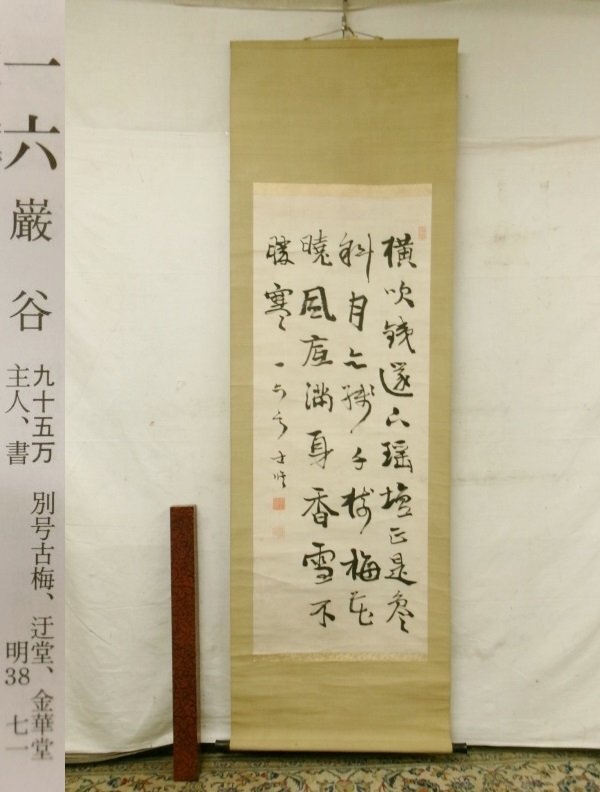 一六
巌谷
九十五万 別号古梅、迂堂、金華堂
主人、書 明38 七一
横吹鐵篴下瑶壇正是参
斜月亦残千樹梅花
暁風底満身香雪不
寒 一六居士修